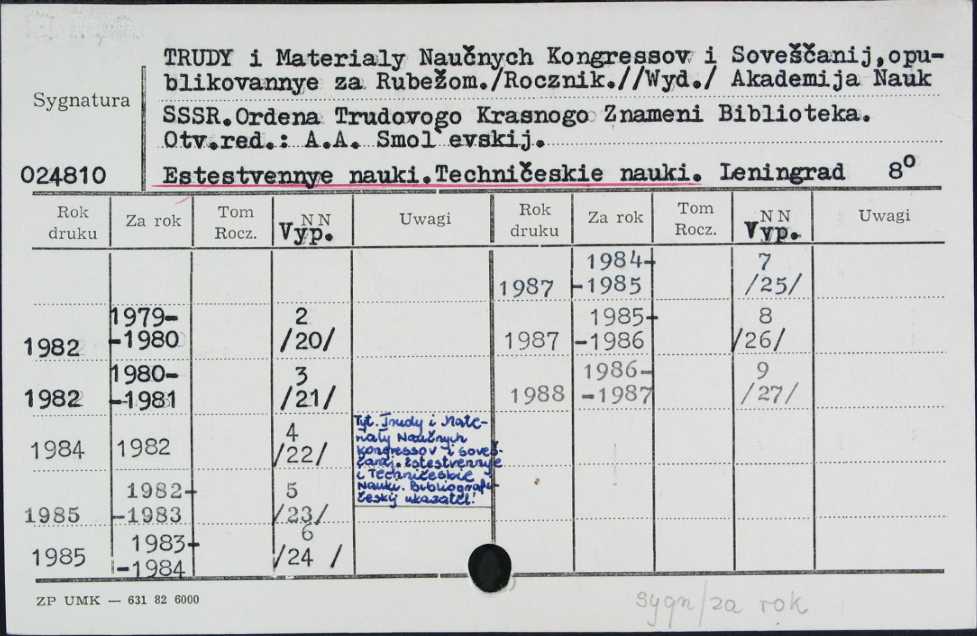 TRUDY i Materialy Naučnych Kongressov i Soveščanij,opu-
blikovannye za Rubežom./Rocznik.//Wyd./ Akademija Nauk
Sygnatura
SSSR.Ordena Trudovogo Krasnogo Znameni Biblioteka.
Otv.red.: A.A. Smol'evskij.
024810 Estestvennye nauki.Techničeskie nauki. Leningrad 8°
Rok druku Za rok Tom Rocz. NN Vyp. Uwagi Rok druku Za rok Tom Rocz. NN Vyp. Uwagi
1987 1984-
-1985 7
/25/
1982 1979-
-1980 2
/20/ 1987 1985-
-1986 8
/26/
1982 1980-
-1981 3
/21/ 1988 1986-
-1987 9
/27/
1984 1982 4
/22/
Tyt. Trudy i Mate-
rialy Naučnych
kongressov i soveš-
čanij. Estestvennye
i Techničeskie
Nauki. Bibliografi-
českij ukazatel'
1985 1982-
-1983 5
/23/
1985 1983-
-1984 6
/24 /
ZP UMK — 631 82 6000
sygn/za rok